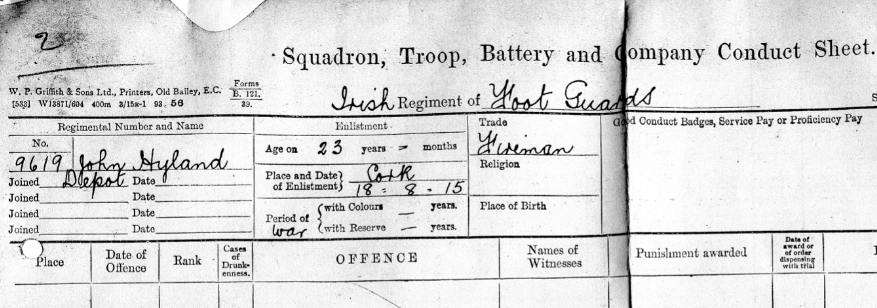 2
Squadron, Troop, Battery and Company Conduct Sheet.
W. P. Griffith & Sons Ltd., Printers, Old Bailey, E.C.
Forms
B. 121.
39.
[583] W13871/604 400m 3/15x-1 93. 56
Irish Regiment of Foot Guards
S
Regimental Number and Name
No.
9619 John Hyland
Joined Depot Date
Joined Date
Joined Date
Joined Date
Enlistment
Age on 23 years = months
Place and Date of Enlistment} Cork
18 = 8 - 15
Period of {with Colours — years.
War {with Reserve — years.
Trade
Fireman
Religion
Place of Birth
Good Conduct Badges, Service Pay or Proficiency Pay
Place
Date of Offence
Rank
Cases of Drunk-enness.
OFFENCE
Names of Witnesses
Punishment awarded
Date of award or of order dispensing with trial